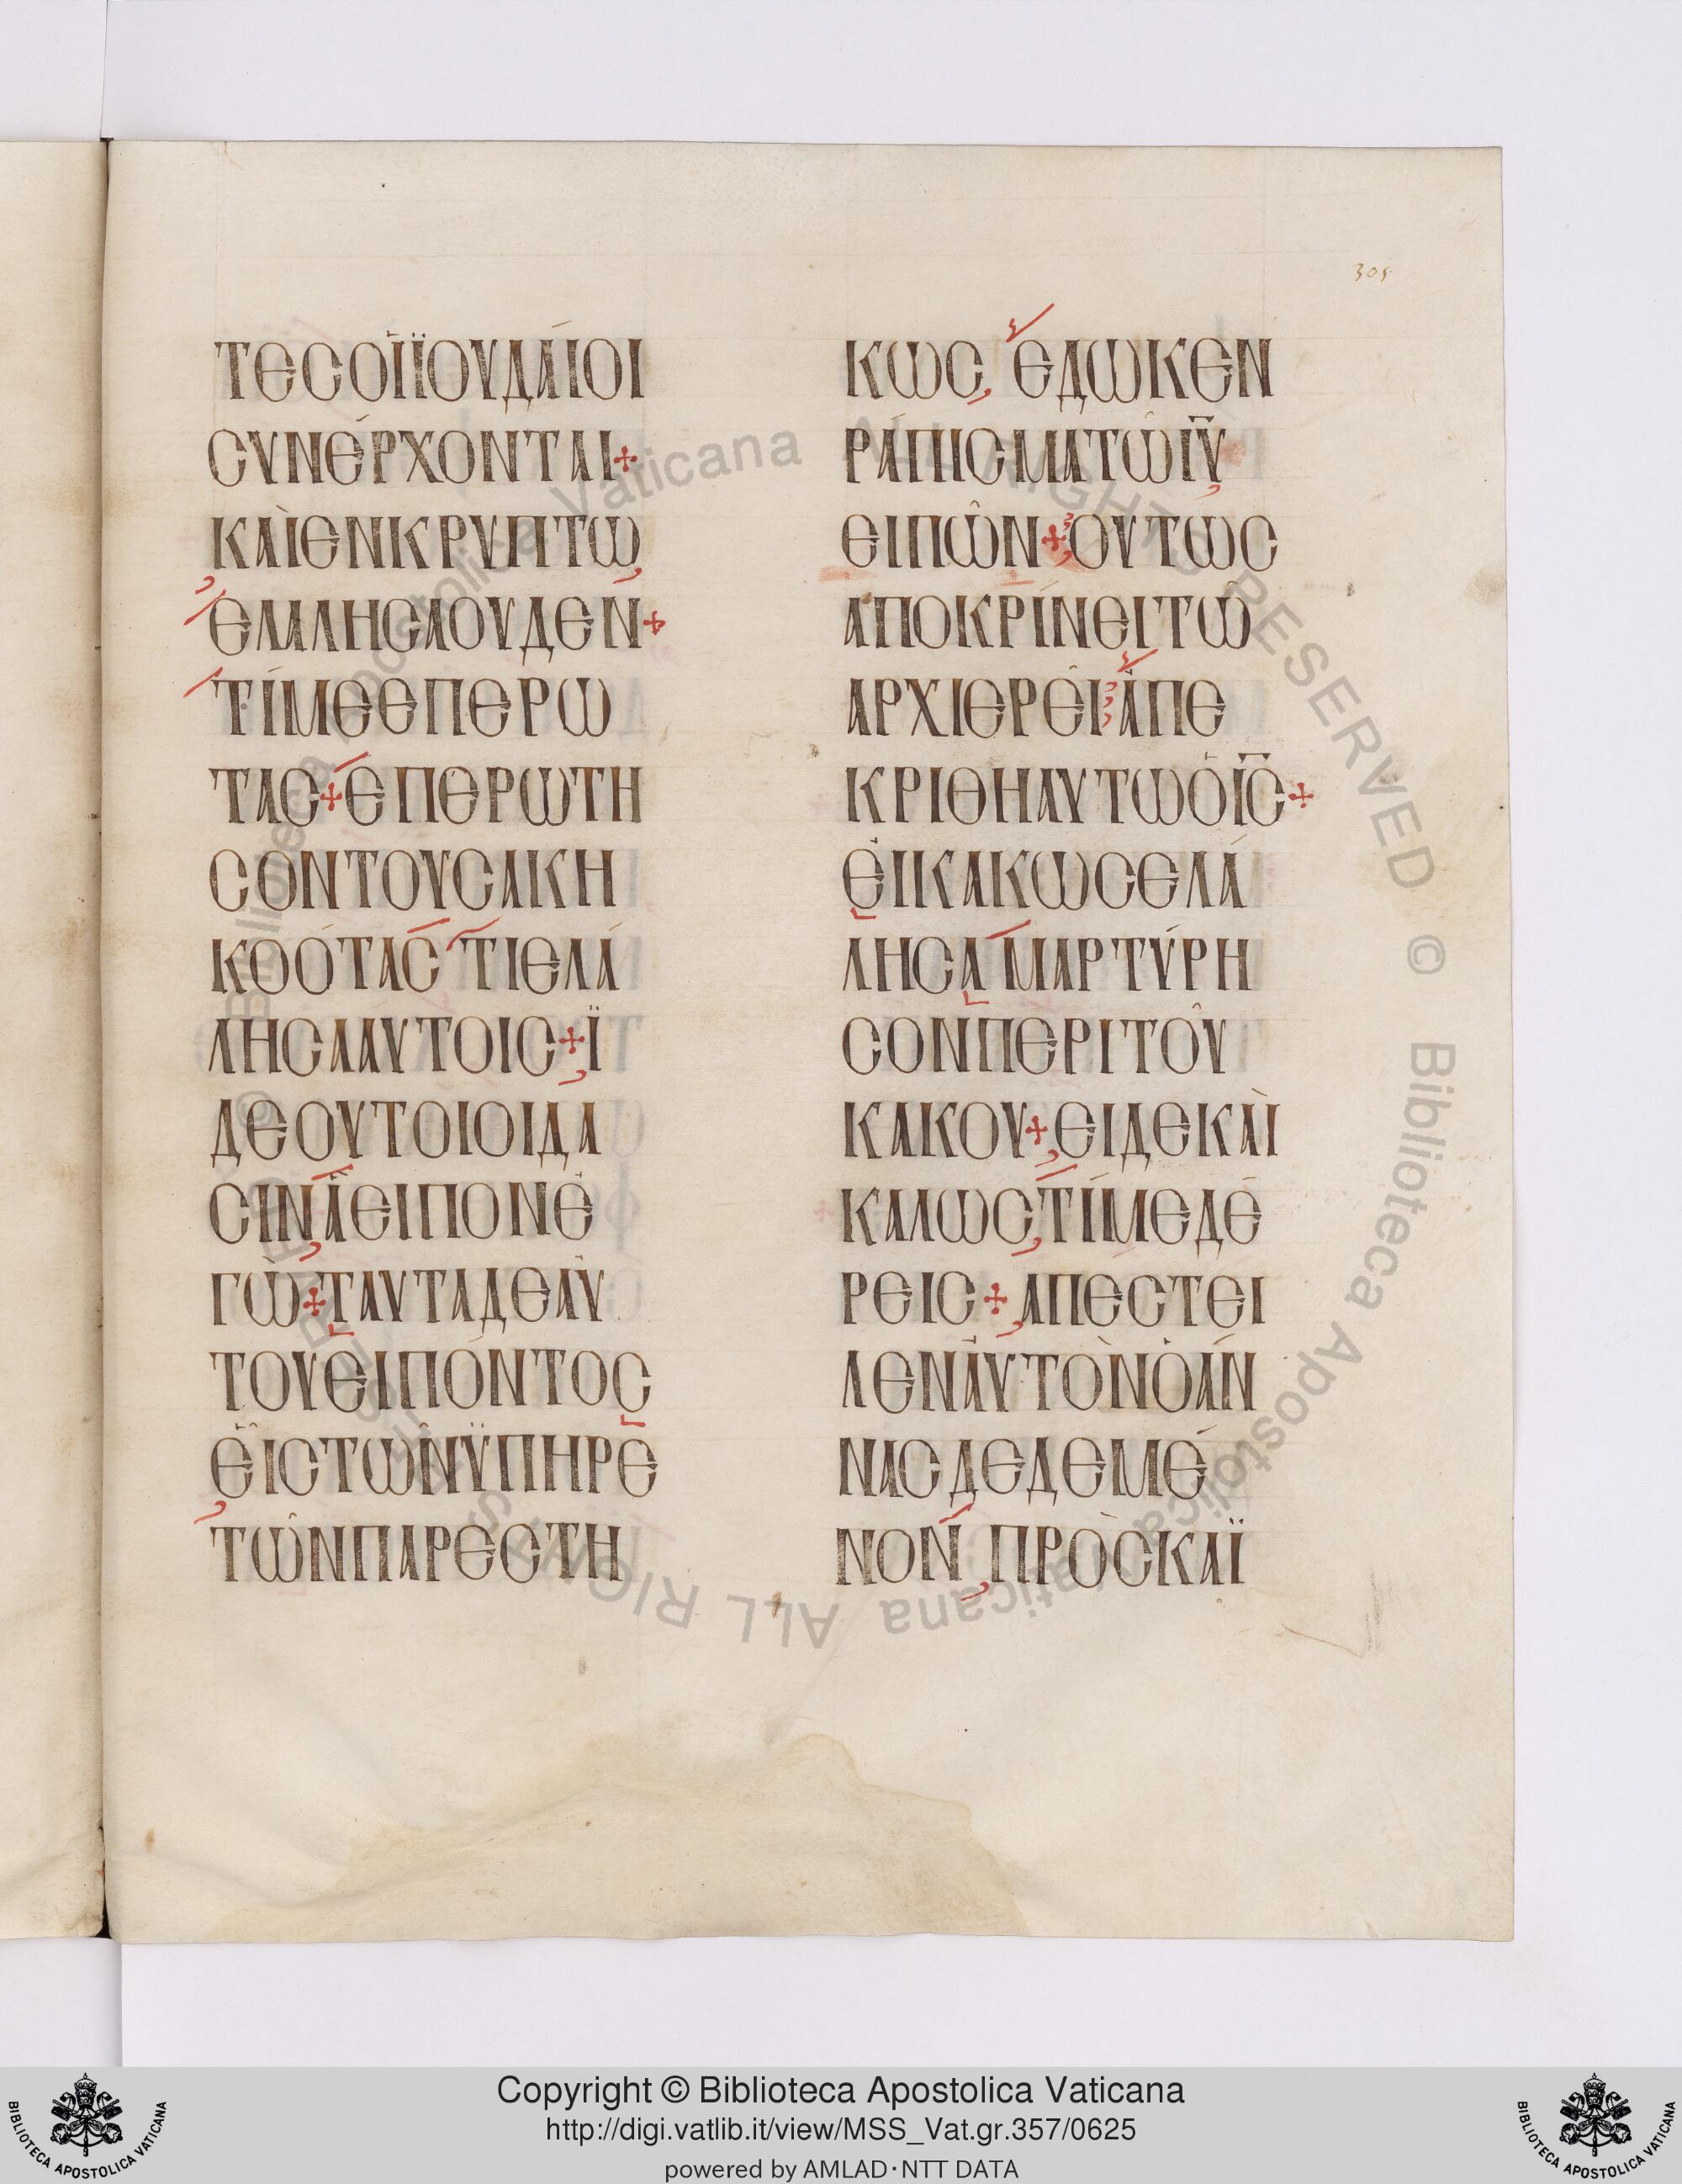 305
ΤΕCΟΙΪΟΥΔΑΙΟΙ
CΥΝΕΡΧΟΝΤΑΙ+
ΚΑΙΕΝΚΡΥΠΤΩ
ΕΛΑΛΗCΑΟΥΔΕΝ+
ΤΙΜΕΕΠΕΡΩ
ΤΑC+ΕΠΕΡΩΤΗ
CΟΝΤΟΥCΑΚΗ
ΚΟΟΤΑC ΤΙΕΛΑ
ΛΗCΑΑΥΤΟΙC+Ϊ
ΔΕΟΥΤΟΙΟΙΔΑ
CΙΝΑΕΙΠΟΝΕ
ΓΩ+ΤΑΥΤΑΔΕΑΥ
ΤΟΥΕΙΠΟΝΤΟC
ΕΙCΤΩΝΫΠΗΡΕ
ΤΩΝΠΑΡΕCΤΗ
ΚΩC, ΕΔΩΚΕΝ
ΡΑΠΙCΜΑΤΩΙ̅Υ̅
ΕΙΠΩΝ+ΟΥΤΩC
ΑΠΟΚΡΙΝΕΙΤΩ
ΑΡΧΙΕΡΕΙΑΠΕ
ΚΡΙΘΗΑΥΤΩΟΙ̅C̅+
ΕΙΚΑΚΩCΕΛΑ
ΛΗCΑ ΜΑΡΤΥΡΗ
CΟΝΠΕΡΙΤΟΥ
ΚΑΚΟΥ+ΕΙΔΕΚΑΙ
ΚΑΛΩC,ΤΙΜΕΔΕ
ΡΕΙC+ΑΠΕCΤΕΙ
ΛΕΝΑΥΤΟΝΟΑΝ
ΝΑCΔΕΔΕΜΕ
ΝΟΝ, ΠΡΟCΚΑΪ
© Biblioteca Apostolica Vaticana ALL RIGHTS RESERVED © Biblioteca Apostolica Vaticana ALL RIGHTS RESERVED
Copyright © Biblioteca Apostolica Vaticana
http://digi.vatlib.it/view/MSS_Vat.gr.357/0625
powered by AMLAD·NTT DATA
BIBLIOTECA APOSTOLICA VATICANA
BIBLIOTECA APOSTOLICA VATICANA